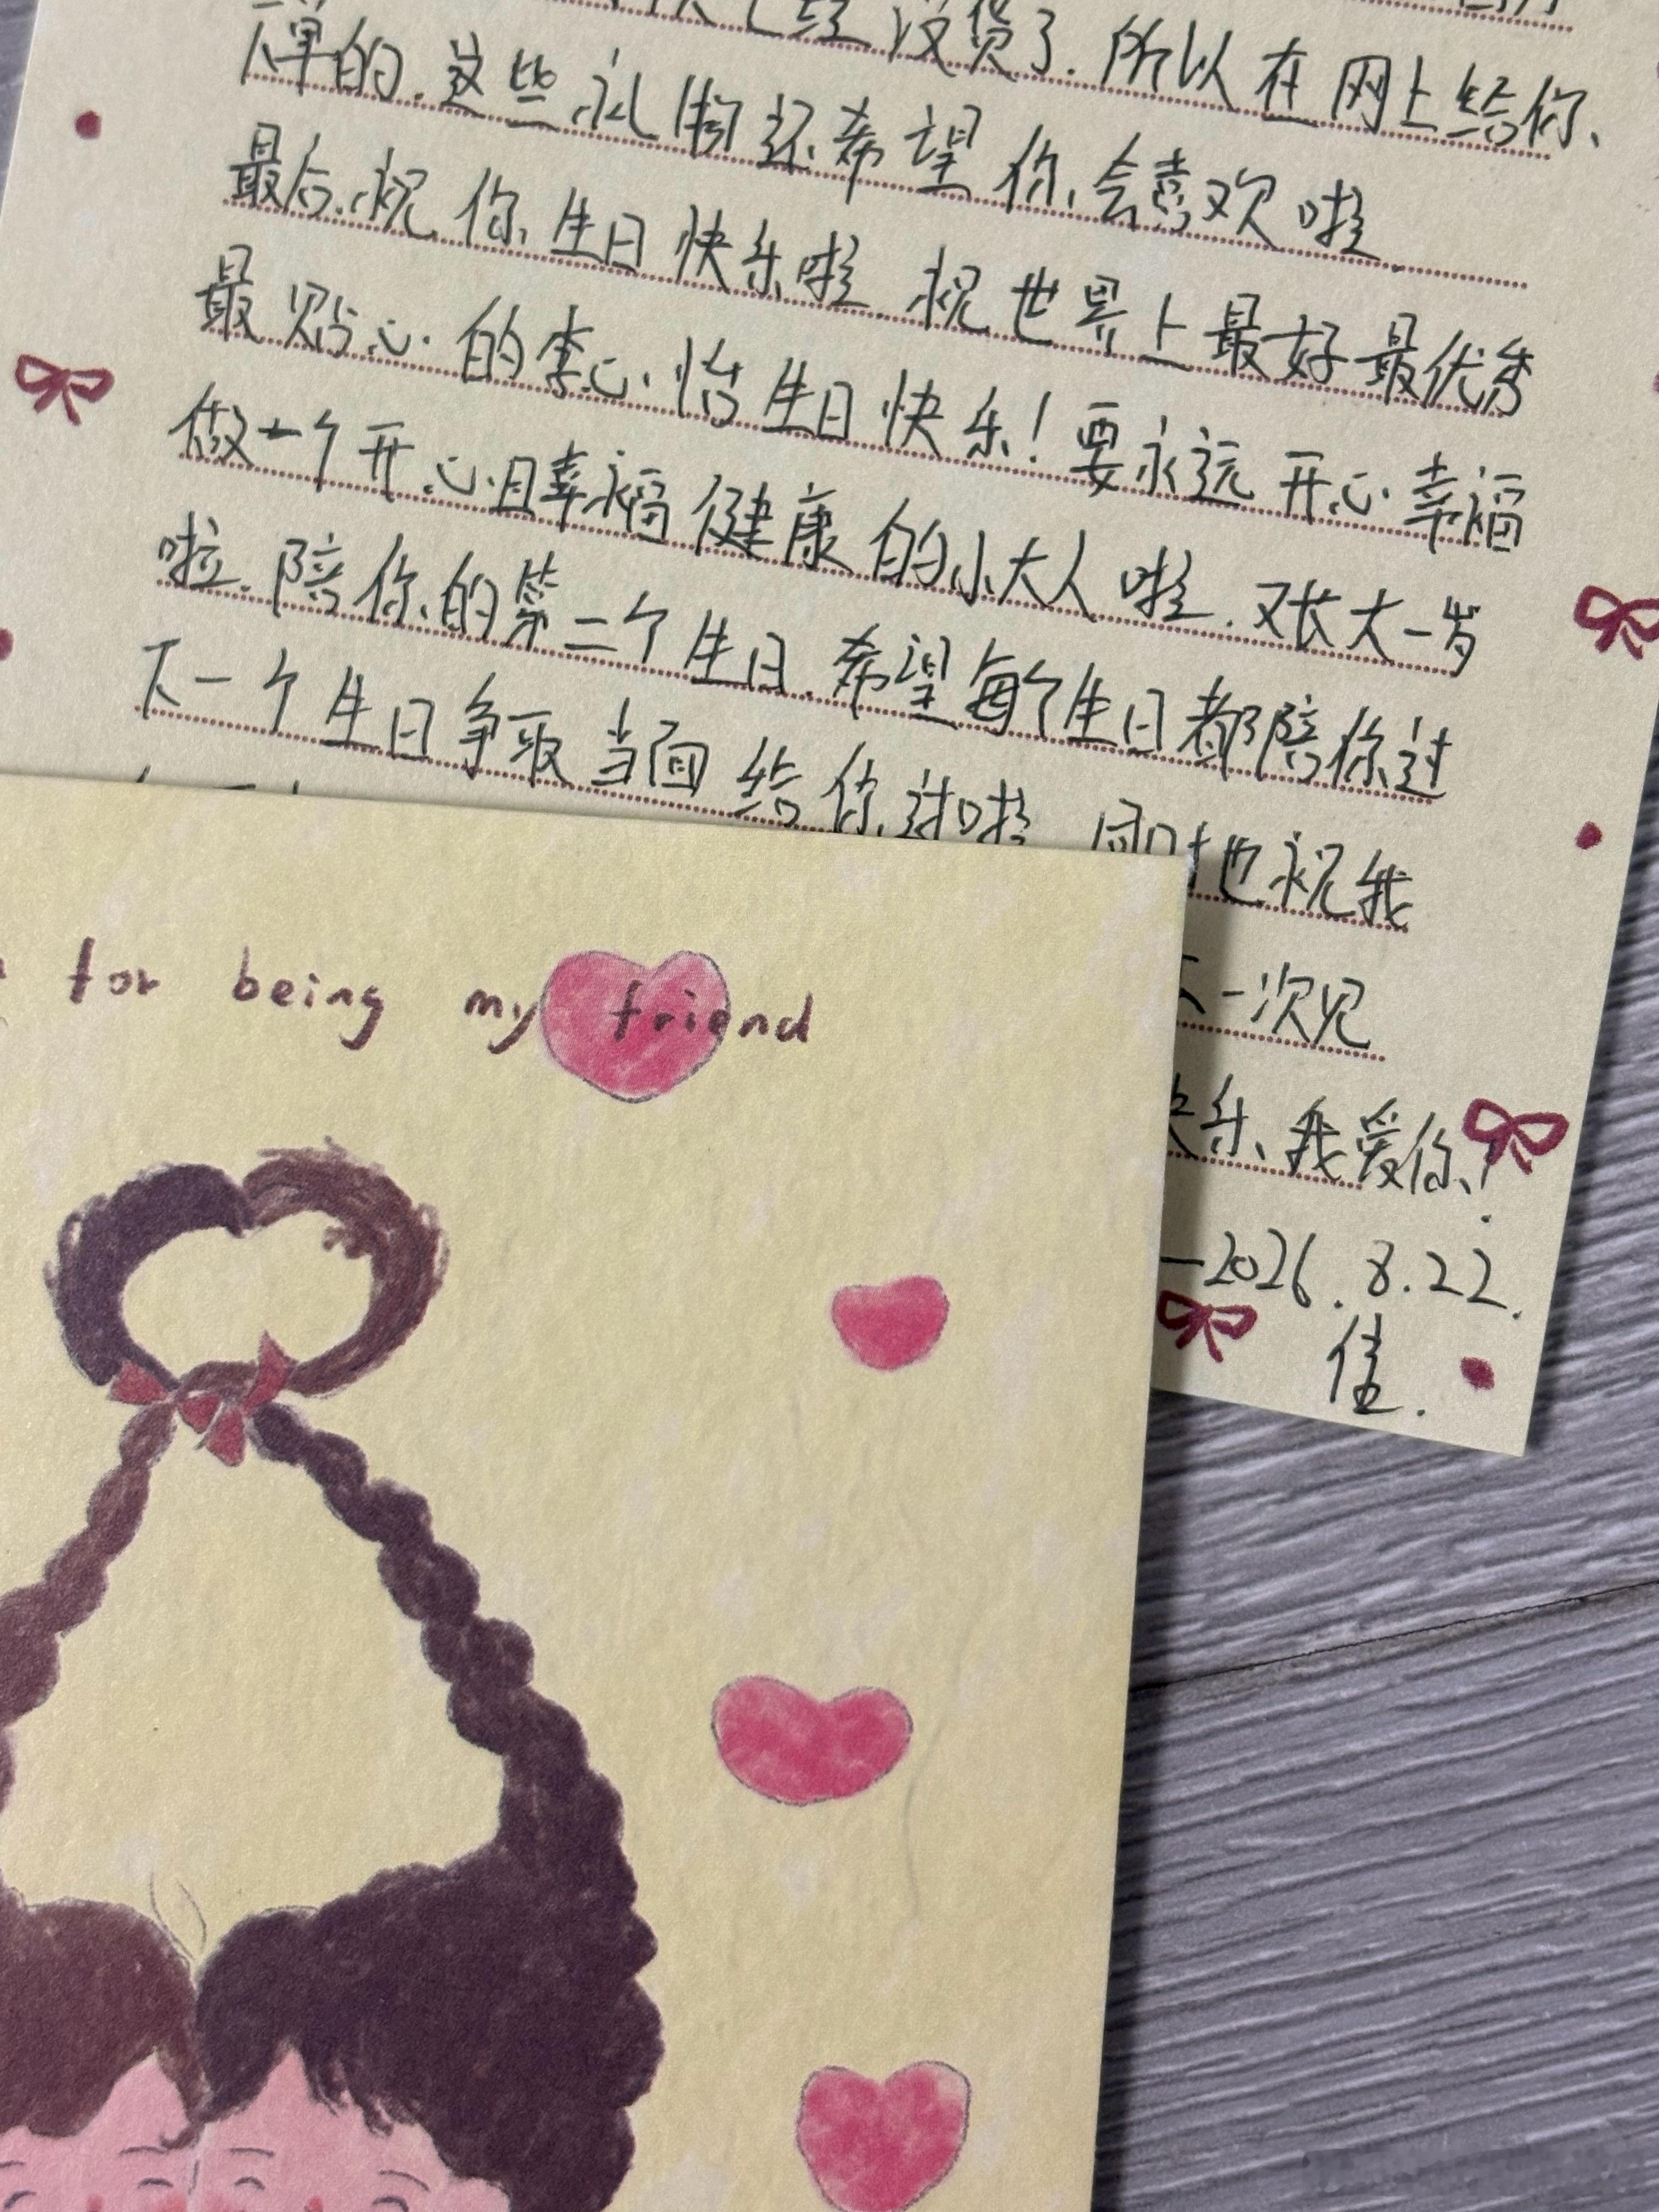 已经没货了.所以在网上给你
下单的.这些礼物还希望你会喜欢啦
最后.祝你生日快乐啦.祝世界上最好最优秀
最贴心的李心怡生日快乐!要永远开心幸福
做一个开心且幸福健康的小大人啦.又长大一岁
啦.陪你的第二个生日.希望每个生日都陪你过
下一个生日争取当面给你过啦 同时也祝我
一次见
快乐、我爱你!
—2026.8.22.
佳.
for being my friend